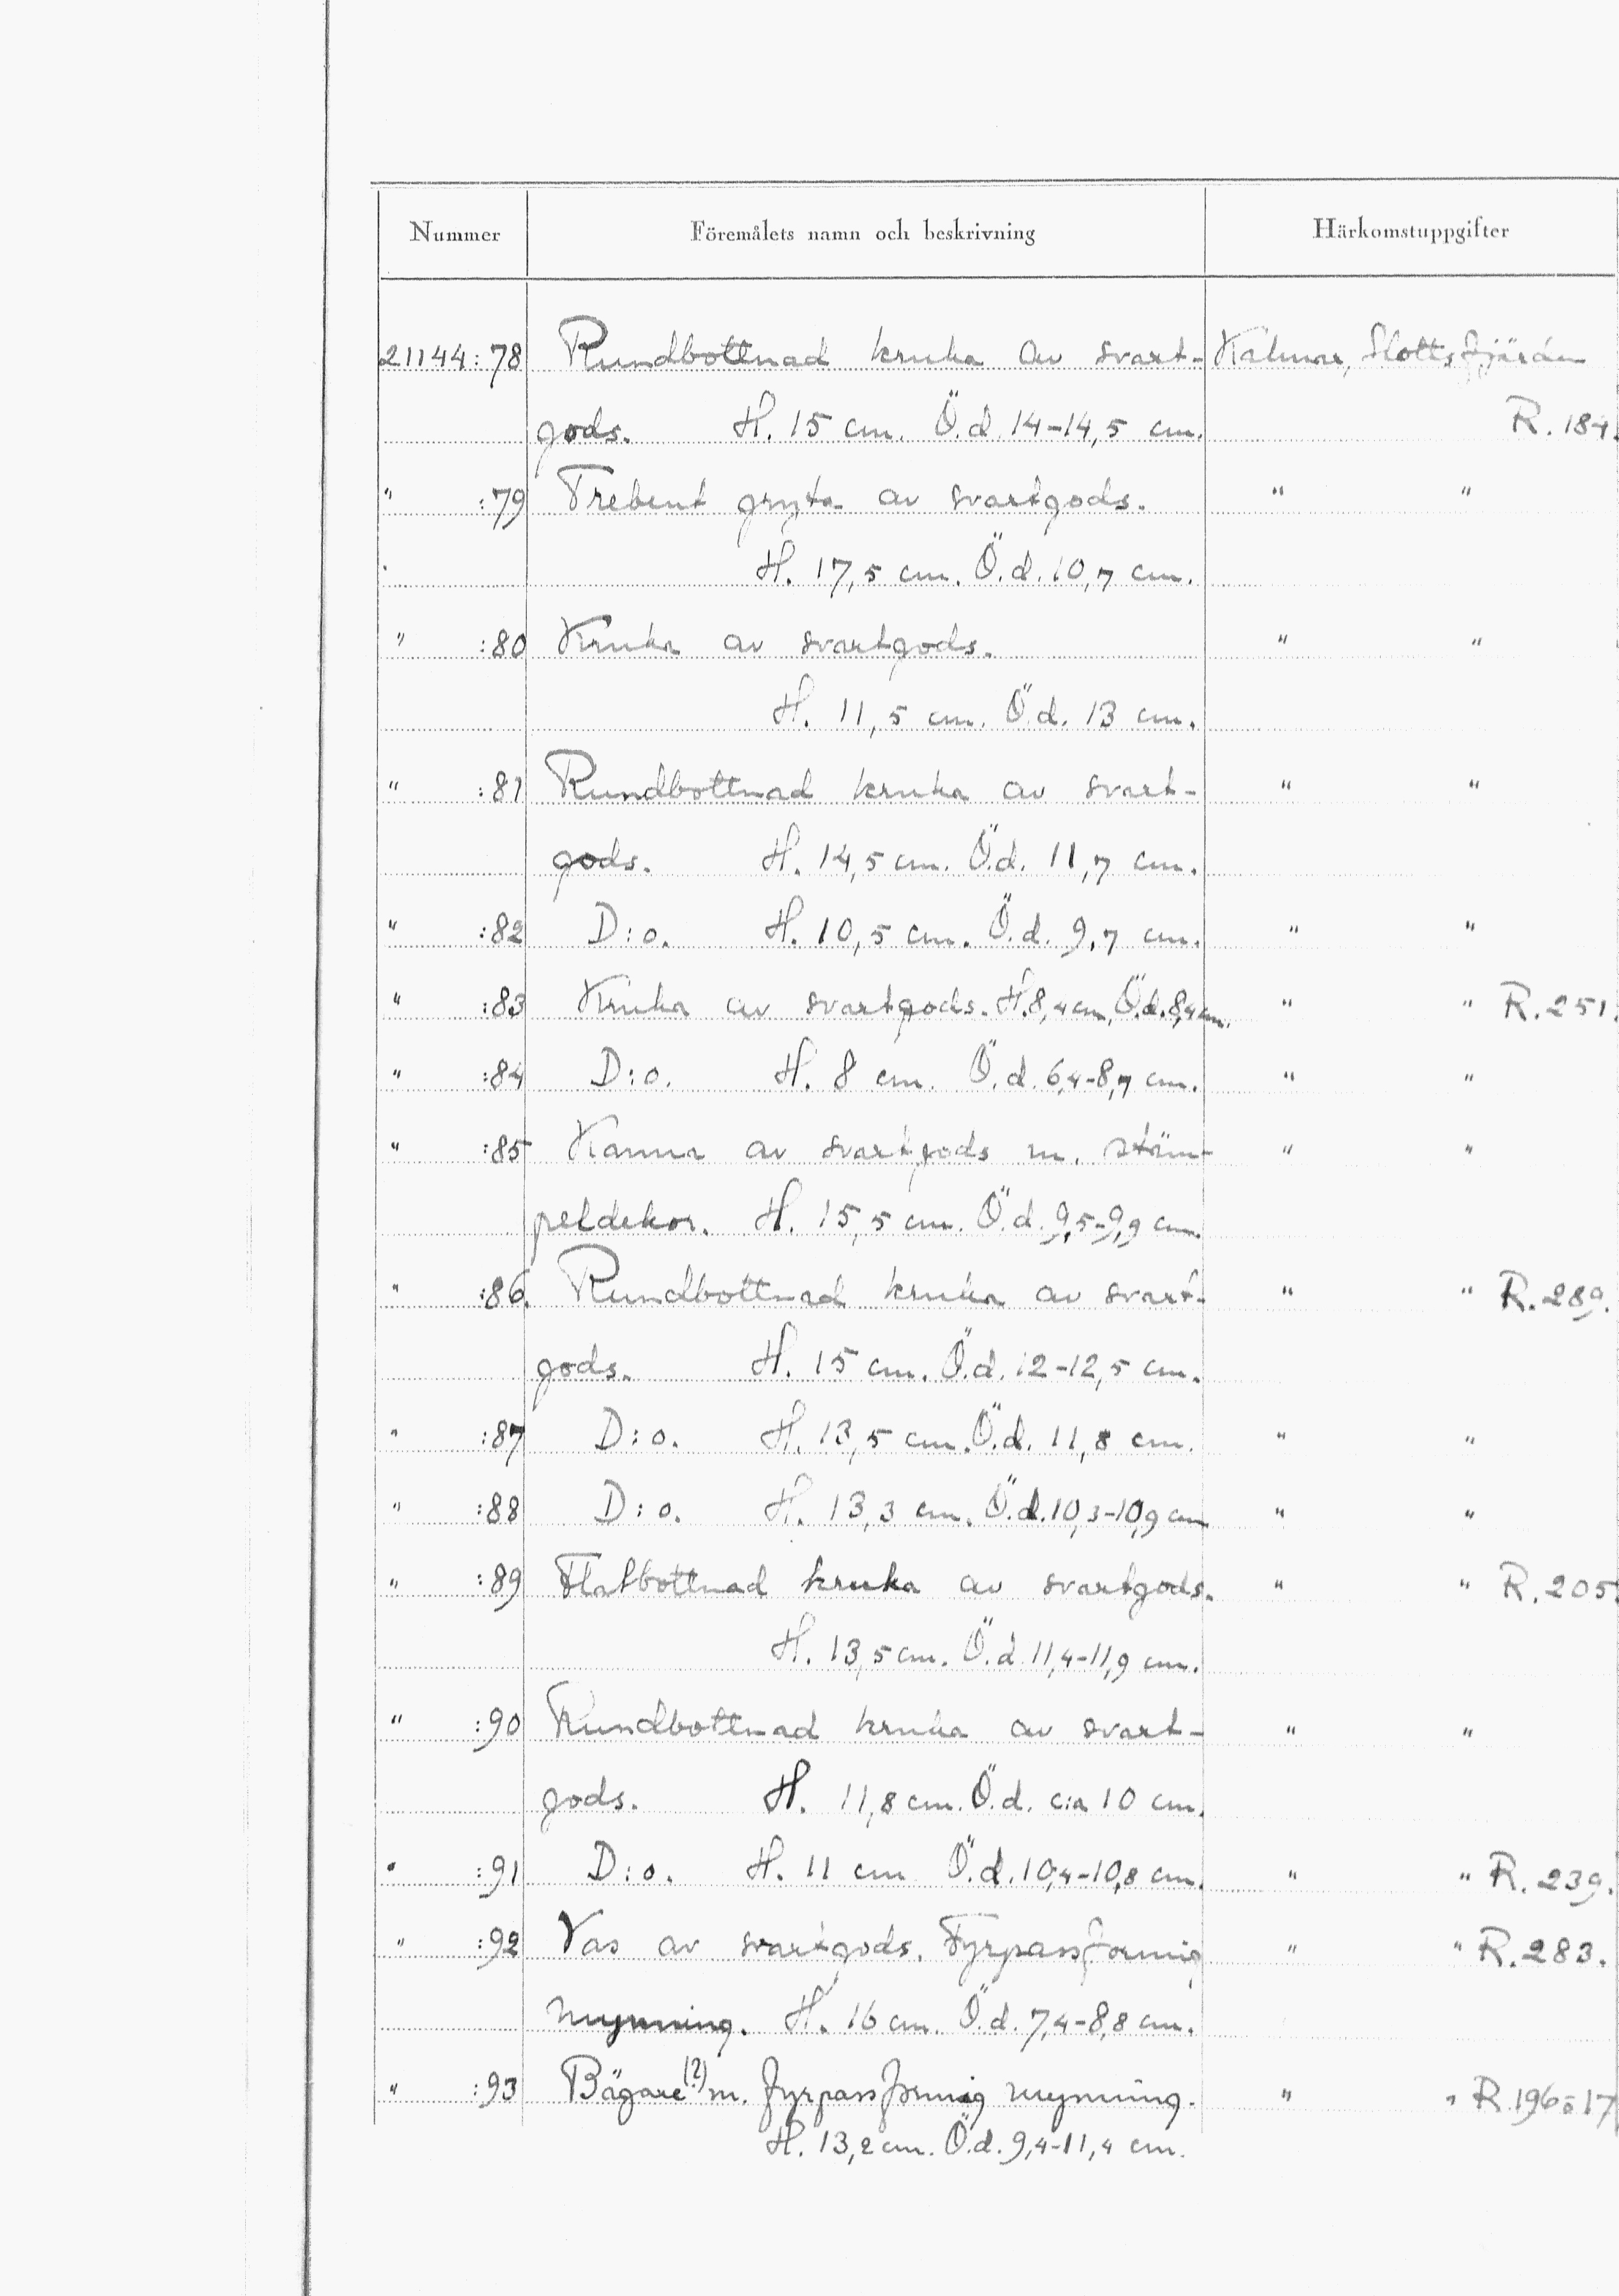 Nummer Föremålets namn och beskrivning Härkomstuppgifter
21144:78 Rundbottnad kruka av svart- Kalmar, Slottsfjärden
gods. H. 15 cm. Ö.d. 14-14,5 cm. R. 184.
" :79 Trebent gryta av svartgods. " "
H. 17,5 cm. Ö.d. 10,7 cm.
" :80 Kruka av svartgods. " "
H. 11,5 cm. Ö.d. 13 cm.
" :81 Rundbottnad kruka av svart- " "
gods. H. 14,5 cm. Ö.d. 11,7 cm.
" :82 D:o. H. 10,5 cm. Ö.d. 9,7 cm. " "
" :83 Kruka av svartgods. H. 8,4 cm. Ö.d. 8,4 cm. " " R. 251.
" :84 D:o. H. 8 cm. Ö.d. 6,4-8,7 cm. " "
" :85 Kanna av svartgods m. stäm- " "
peldekor. H. 15,5 cm. Ö.d. 9,5-9,9 cm.
" :86. Rundbottnad kruka av svart- " " R. 289.
gods. H. 15 cm. Ö.d. 12-12,5 cm.
" :87 D:o. H. 13,5 cm. Ö.d. 11,8 cm. " "
" :88 D:o. H. 13,3 cm. Ö.d. 10,3-10,9 cm " "
" :89 Flatbottnad kruka av svartgods. " " R. 205.
H. 13,5 cm. Ö.d. 11,4-11,9 cm.
" :90 Rundbottnad kruka av svart- " "
gods. H. 11,8 cm. Ö.d. c:a 10 cm.
" :91 D:o. H. 11 cm Ö.d. 10,4-10,8 cm. " " R. 239.
" :92 Vas av svartgods. Fyrpassformig " " R. 283.
mynning. H. 16 cm. Ö.d. 7,4-8,8 cm.
" :93 Bägare (?) m. fyrpassformig mynning. " " R. 196 o 17
H. 13,2 cm. Ö.d. 9,4-11,4 cm.